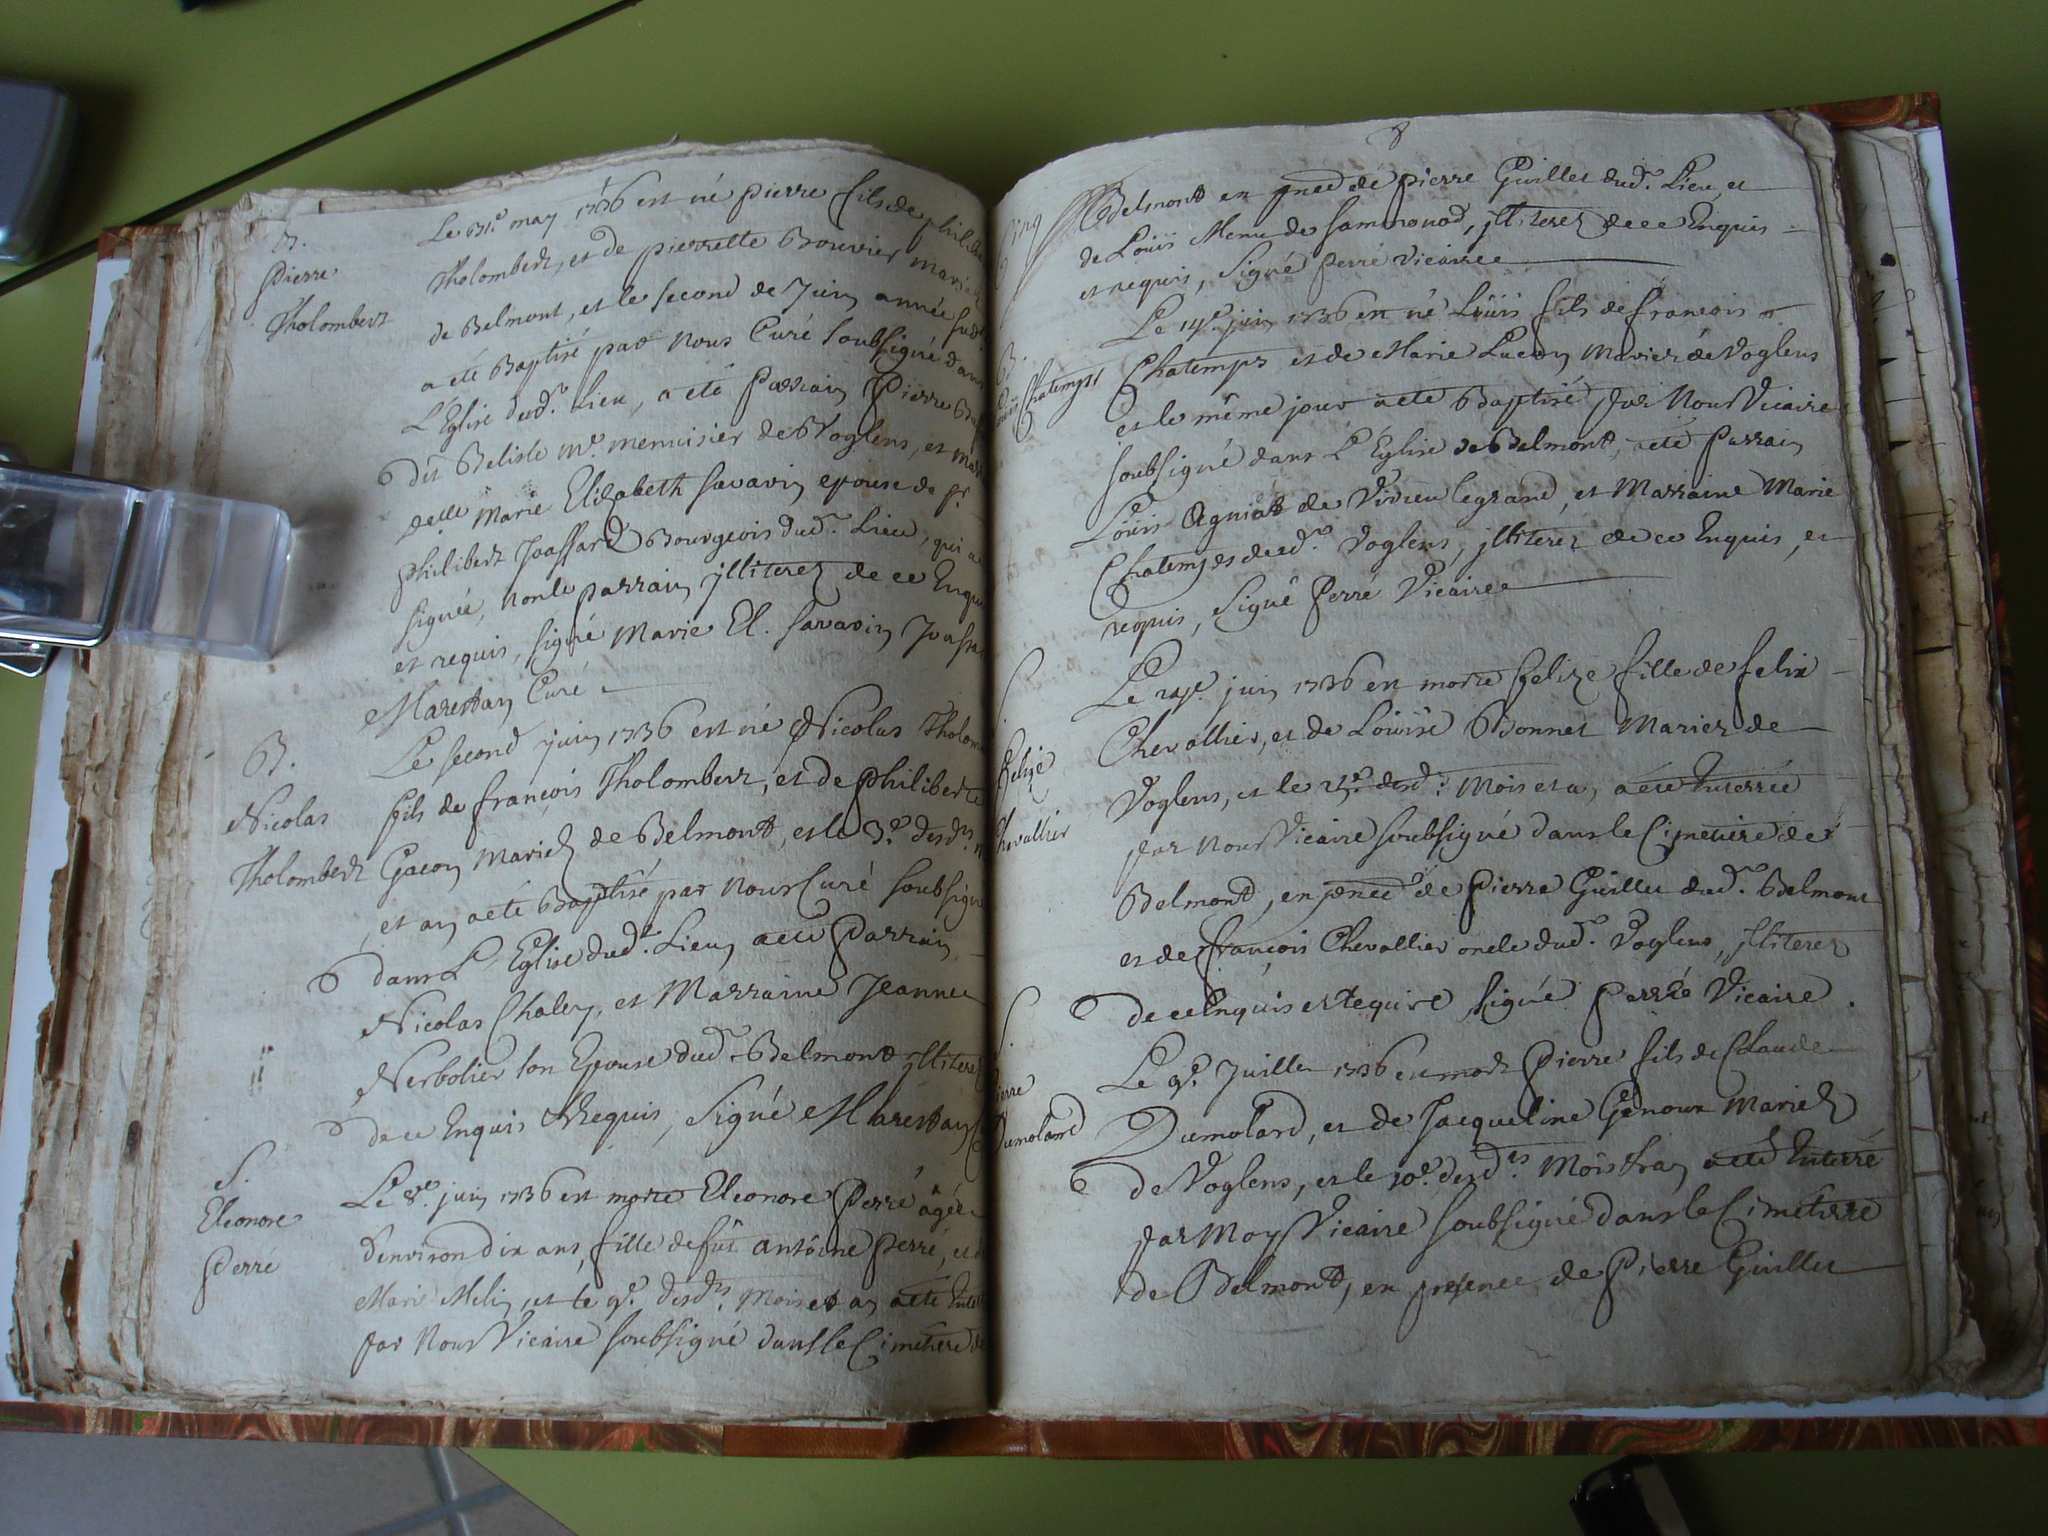 B.
Pierre
Tholombert
Le 31e. may 1736 est né pierre fils de philibe
Tholombert, et de pierrette Bouvier marie
de Belmont, et le second de Juin année sud
a eté Baptisé par nous Curé soubsigné dans
L'Eglise dud. Lieu, a eté Parrain Pierre
dit Belisle me. menuisier de Voglens, et mar
delle Marie Elizabeth Savarin epouse de sr.
philibert Joassard Bourgeois dud. Lieu, qui a
signée, non le parrain jlliterez de ce Enqu
et requis, signé Marie El. Savarin Joassa
Marettan Curé
B.
Nicolas
Tholombert
Le second juin 1736 est né Nicolas Tholom
fils de françois Tholombert, et de Philiberte
Gacon Mariez de Belmont, et le 3e. desds. m
et an a eté Baptisé par nous Curé soubsigné
dans L'Eglise dud. Lieu, a eté Parrain
Nicolas Chaley, et Marraine Jeanne
Nerbolier son Epouse dud. Belmont jlliterez
de ce Enquis & Requis, signé Marettan C
S.
Eleonore
Perré
Le 8e. juin 1736 est morte Eleonore Perré âgée
d'environ dix ans, fille de fût antoine Perré, et d
Marie Melin, et le 9e. desds. Mois et an a eté Enter
par Nous Vicaire soubsigné dans le Cimetiere de
8
Belmont en pnce de pierre Guillet dud. Lieu, et
de Loüis Menu de Samonod, jlliterez de ce Enquis
et requis, signé perré vicaire
B.
Loüis Chatemps
Le 14e. juin 1736 est né Loüis fils de françois
Chatemps et de Marie Lucon Mariez de Voglens
et le même jour a eté Baptisé par Nous Vicaire
soubsigné dans L'Eglise de Belmont, a eté Parrain
Loüis Agniat de Virieu legrand, et Marraine Marie
Chatemps dud. Voglens, jlliterez de ce Enquis, et
requis, signé Perré Vicaire
S.
Felize
Chevallier
Le 24e. juin 1736 est morte felize fille de felix
Chevallier, et de Loüise Bonnet Mariez de
Voglens, et le 25e. dud. Mois et an a eté Enterrée
par nous Vicaire soubsigné dans le Cimetiere de
Belmont, en pnce de Pierre Guillet dud. Belmont
et de françois Chevallier oncle dud. Voglens, jlliterez
de ce Enquis et requis signé Perré Vicaire.
S.
Pierre
Dumolard
Le 9e. Juillet 1736 est mort Pierre fils de Claude
Dumolard, et de Jacqueline Genoux Mariez
de Voglens, et le 10e. desds. Mois & an a eté Enterré
par Moy Vicaire soubsigné dans le Cimetiere
de Belmont, en presence de Pierre Guillet